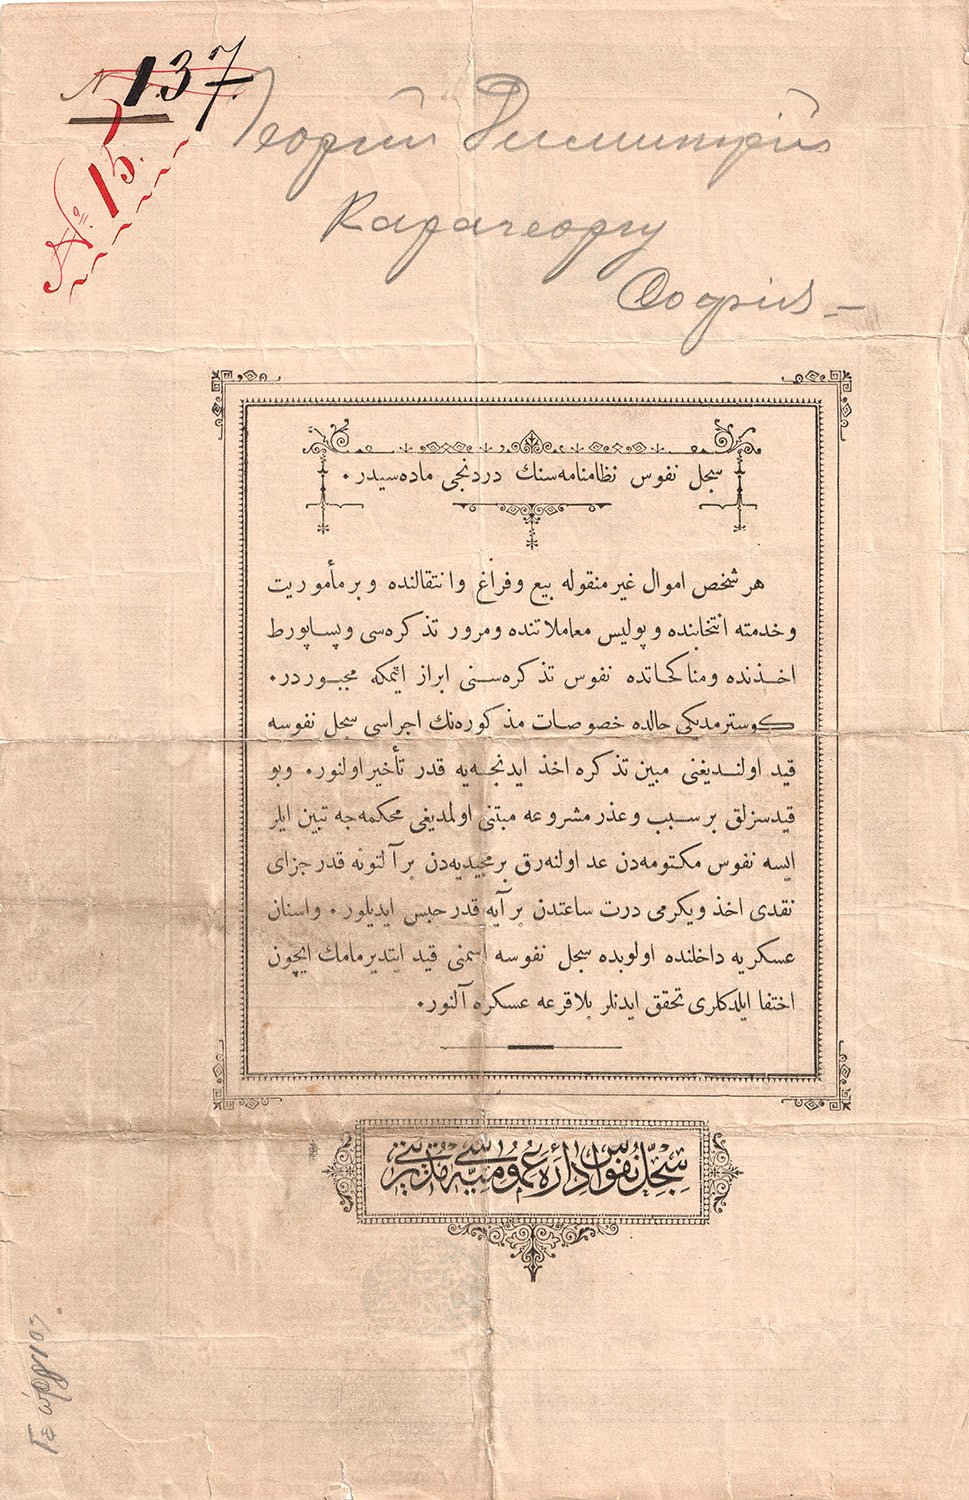 N 137.
№ 15.
Георгий Димитрів
Карагеоргу
Софія —
سجل نفوس نظامنامه‌سنك دردنجی ماده‌سیدر ·
هر شخص اموال غیر منقوله بیع و فراغ و انتقالنده و بر مأموریت
و خدمته انتخابنده و پولیس معاملاتنده و مرور تذكره‌سی و پساپورط
اخذنده و مناكحاتده نفوس تذكره‌سنی ابراز ایتمكه مجبوردر·
كوسترمدیكی حالده خصوصات مذكوره‌نك اجراسی سجل نفوسه
قید اولندیغنی مبین تذكره اخذ ایدنجه‌یه قدر تأخیر اولنور· وبو
قیدسزلق بر سبب و عذر مشروعه مبتنی اولمدیغی محكمه‌جه تبین ایلر
ایسه نفوس مكتومه‌دن عد اولنه‌رق بر مجیدیه‌دن بر آلتونه قدر جزای
نقدی اخذ و یكرمی درت ساعتدن بر آیه قدر حبس ایدیلور· و اسنان
عسكریه داخلنده اولوبده سجل نفوسه اسمنی قید ایتدیرمامك ایچون
اختفا ایلدكلری تحقق ایدنلر بلا قرعه عسكره آلنور·
سجل نفوس اداره عمومیه‌سی مدیریتی
Γεώργιος.